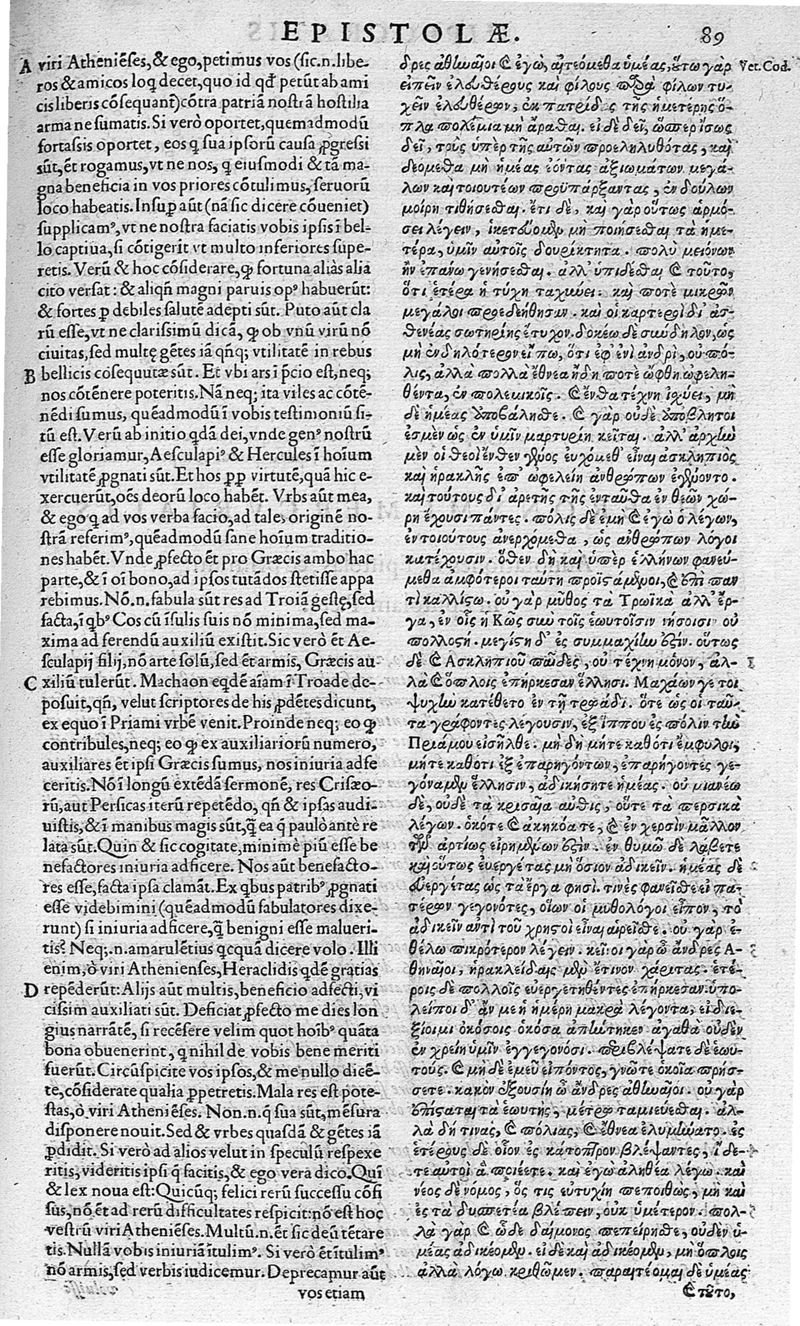 EPISTOLÆ. 89
A viri Atheniẽses,& ego,petimus vos (sic.n.libe-
ros & amicos loq̃ decet,quo id qd̃ petũt ab ami
cis liberis cõsequant̃)cõtra patriã nostrã hostilia
arma ne sumatis. Si verò oportet,quemadmodũ
fortassis oportet, eos q̃ sua ipsorũ causa ꝓgressi
sũt,ẽt rogamus,vt ne nos, q̃ eiusmodi & tã ma-
gna beneficia in vos priores cõtulimus,seruorũ
loco habeatis. Insuꝑ aũt (nã sic dicere cõueniet)
supplicamꝰ,vt ne nostra faciatis vobis ipsis ĩ bel-
lo captiua,si cõtigerit vt multo inferiores supe-
retis. Verũ & hoc cõsiderare,ꝙ fortuna aliàs alia
cito versat̃: & aliqñ magni paruis opꝰ habuerũt:
& fortes ꝑ debiles salutẽ adepti sũt. Puto aũt cla
rũ esse,vt ne clarissimũ dicã, ꝙ ob vnũ virũ nõ
ciuitas,sed multę gẽtes iã qñq; vtilitatẽ in rebus
B bellicis cosequutæ sũt. Et vbi ars ĩ p̃cio est,neq;
nos cõtẽnere poteritis. Nã neq; ita viles ac cõtẽ-
nẽdi sumus, quẽadmodũ ĩ vobis testimoniũ si-
tũ est. Verũ ab initio qdã dei,vnde genꝰ nostrũ
esse gloriamur,Aesculapiꝰ & Hercules ĩ hoĩum
vtilitatẽ ꝓgnati sũt. Et hos ꝓp̃ virtutẽ,quã hic e-
xercuerũt,oẽs deorũ loco habẽt. Vrbs aũt mea,
& ego q̃ ad vos verba facio,ad tale, originẽ no-
strã referimꝰ,quẽadmodũ sane hoĩum traditio-
nes habẽt. Vnde ꝓfecto et pro Græcis ambo hac
parte,& ĩ oĩ bono,ad ipsos tutãdos stetisse appa
rebimus. Nõ.n.fabula sũt res ad Troiã gestę,sed
facta,ĩ qbꝰ Cos cũ ĩsulis suis nõ minima,sed ma-
xima ad ferendũ auxiliũ existit. Sic verò ẽt Ae-
sculapij filij,nõ arte solũ,sed ẽt armis, Græcis au-
C xiliũ tulerũt. Machaon eqdẽ aĩam ĩ Troade de-
posuit,qñ, velut scriptores de his ꝓdẽtes dicunt,
ex equo ĩ Priami vrbẽ venit. Proinde neq; eo ꝙ
contribules,neq; eo ꝙ ex auxiliariorũ numero,
auxiliares ẽt ipsi Græcis sumus, nos iniuria adfe
ceritis. Nõ ĩ longũ extẽdã sermonẽ, res Crisæo-
rũ,aut Persicas iterũ repetẽdo, qñ & ipsas audi-
uistis,& ĩ manibus magis sũt,q̃ ea q̃ paulò antè re
lata sũt. Quin & sic cogitate,minimè piũ esse be
nefactores iniuria adficere. Nos aũt benefacto-
res esse,facta ipsa clamãt. Ex qbus patribꝰ ꝓgnati
esse videbimini (quẽadmodũ fabulatores dixe-
runt) si iniuria adficere,q̃ benigni esse malueri-
tis? Neq;.n.amarulẽtius qcquã dicere volo. Illi
enim,ò viri Athenienses,Heraclidis qdẽ gratias
D repẽderũt: Alijs aũt multis,beneficio adfecti,vi
cissim auxiliati sũt. Deficiat ꝓfecto me dies lon
gius narrãtẽ, si recẽsere velim quot hoĩbꝰ quãta
bona obuenerint, q̃ nihil de vobis bene meriti
fuerũt. Circũspicite vos ipsos,& me nullo dicẽ-
te,cõsiderate qualia ꝑpetretis. Mala res est pote-
stas,ò viri Atheniẽses. Non.n.q̃ sua sũt,mẽsura
disponere nouit. Sed & vrbes quasdã & gẽtes iã
ꝑdidit. Si verò ad alios velut in speculũ respexe
ritis,videritis ipsi q̃ facitis,& ego vera dico. Quĩ
& lex noua est: Quicũq; felici rerũ successu cõfi
sus,nõ ẽt ad rerũ difficultates respicit: nõ est hoc
vestrũ viri Atheniẽses. Multũ.n.ẽt sic deũ tẽtare
tis. Nullã vobis iniuriã ĩtulimꝰ. Si verò ẽt ĩtulimꝰ
nõ armis,sed verbis iudicemur. Deprecapur aũt
vos etiam
δρες ἀθηναῖοι ἐ ἐγὼ, αἰτεόμεθα ὑμέας, οὕτω γὰρ Vet. Cod.
εἰπεῖν ἐλευθέρους καὶ φίλους παρὰ φίλων τυ-
χεῖν ἐλευθέρων, ἐκ πατρίδος τῆς ἡμετέρης ὅ-
πλα πολέμια μὴ ἄραθαι. εἰ δὲ δεῖ, ὥσπερ ἴσως
δεῖ, τοὺς ὑπὲρ τῆς αὐτῶν προεληλυθότας, καὶ
δεόμεθα μὴ ἡμέας ἐόντας ἀξιωμάτων μεγά-
λων καὶ τοιουτέων προϋπάρξαντας, ἐν δούλων
μοίρῃ τιθήσεσθαι. ἔτι δὲ, καὶ γὰρ οὕτως ἁρμό-
σει λέγειν, ἱκετεύομεν μὴ ποιήσεσθαι τὰ ἡμέ-
τέρα, ὑμῖν αὐτοῖς δουρίκτητα. πολὺ μειόνων
ἢν ἐπάνω γενήσεσθαι. ἀλλ᾽ ὑπιδέσθαι καὶ τοῦτο,
ὅτι ἑτέρα ἡ τύχη ταχινύει. καὶ ποτὲ μικρῶν
μεγάλοι προεδεήθησαν. καὶ οἱ καρτεροὶ δι᾽ ἀσ-
θενέας σωτηρίης ἔτυχον. δοκέω δὲ σύνδηλον, ὡς
μὴ ἐνδηλότερον εἴπω, ὅτι ἐφ᾽ ἑνὶ ἀνδρὶ, οὐ πό-
λις, ἀλλὰ πολλὰ ἔθνεα ἤδη ποτὲ ὤφθη ὠφελη-
θέντα, ἐν πολεμικοῖς. καὶ ἔνθα τέχνη ἰσχύει, μὴ
δὲ ἡμέας ὑποβάλησθε. καὶ γὰρ οὐδὲ ὑπόβλητοι
ἐσμὲν ὡς ἐν ὑμῖν μαρτυρίη κεῖται. ἀλλ᾽ ἀρχὴν
μὲν οἱ θεοὶ ἔνθεν γένος εὐχόμεθ᾽ εἶναι ἀσκληπιὸς
καὶ ἡρακλῆς ἐπ᾽ ὠφελείῃ ἀνθρώπων ἐγένοντο.
καὶ τούτους δι᾽ ἀρετῆς τῆς ἐνταῦθα ἐν θεῶν χώ-
ρῃ ἔχουσι πάντες. πόλις δὲ ἐμὴ καὶ ἐγὼ ὁ λέγων,
ἐν τοιούτους ἀνερχόμεθα, ὡς ἀνθρώπων λόγοι
κατέχουσιν. ὅθεν δὴ καὶ ὑπὲρ ἑλλήνων φανεύ-
μεθα ἀμφότεροι ταύτῃ προϊστάμενοι, καὶ ἐπὶ παν
τὶ καλλίστῳ. οὐ γὰρ μῦθος τὰ Τρωϊκὰ ἀλλ᾽ ἔρ-
γα, ἐν οἷς ἡ Κῶς σὺν τοῖς ἑωυτοῖσιν νήσοισι οὐ
πολλοστὴ. μεγίστη δ᾽ ἐς συμμαχίην ἐστίν. οὕτως
δὲ καὶ Ἀσκληπιοῦ παῖδες, οὐ τέχνῃ μόνον, ἀλ-
λὰ καὶ ὅπλοις ἐπήρκεσαν ἕλλησι. Μαχάων γέ τοι
ψυχὴν κατέθετο ἐν τῇ τρῳάδι. ὅτε ὡς οἱ ταῦ-
τα γράφοντες λέγουσιν, ἐξ ἵππου ἐς πόλιν τὴν
Πριάμου εἰσῆλθε. μὴ δὴ μήτε καθότι ἔμφυλοι,
μήτε καθότι ἐξ ἐπαρηγόντων, ἐπαρήγοντες γε-
γόναμεν ἕλλησιν, ἀδικήσητε ἡμέας. οὐ μιανέω
δὲ, οὐδὲ τὰ κρισαῖα αὖθις, οὔτε τὰ περσικὰ
λέγων. ὁκότε καὶ ἀκηκόατε, καὶ ἐν χερσὶν μᾶλλον
τῶν ἀρτίως εἰρημένων ἐστίν. ἐν θυμῷ δὲ λάβετε
καὶ οὕτως εὐεργέτας μὴ ὅσιον ἀδικεῖν. ἡμέας δὲ
εὐεργέτας ὡς τὰ ἔργα φησί. τινὲς φανεῖσθε εἰ πα-
τέρων γεγονότες, οἵων οἱ μυθολόγοι εἶπον, τὸ
ἀδικεῖν ἀντὶ τοῦ χρηστοὶ εἶναι αἱρεῖσθε. οὐ γὰρ ἐ-
θέλω πικρότερον λέγειν. κεῖνοι γὰρ ὦ ἄνδρες Ἀ-
θηναῖοι, ἡρακλείδαις μὲν ἔτινον χάριτας. ἑτέ-
ροις δὲ πολλοῖς εὐεργετηθέντες ἐπήρκεσαν. ὑπο-
λείποι δ᾽ ἄν με ἡ ἡμέρη μακρὰ λέγοντα, εἰ διε-
ξίοιμι ὁκόσοις ὁκόσα ἀπήντηκεν ἀγαθὰ οὐδὲν
ἐν χρείῃ ὑμῖν ἐγγεγονόσι. περιβλέψατε δὲ ἑωυ-
τούς. καὶ μὴ δὲ ἐμεῦ εἰπόντος, γνῶτε ὁκοῖα πρήσ-
σετε. κακὸν ἐξουσίη ὦ ἄνδρες ἀθηναῖοι. οὐ γὰρ
ἐπίσταται τὰ ἑωυτῆς, μέτρῳ ταμιεύεσθαι. ἀλ-
λὰ δή τινας, καὶ πόλιας, καὶ ἔθνεα ἐλυμήνατο. ἐς
ἑτέρους δὲ οἷον ἐς κάτοπτρον βλέψαντες, ἴδε-
τε αὐτοὶ ἃ ποιέετε. καὶ ἐγὼ ἀληθέα λέγω. καὶ
νέος δὲ νόμος, ὅς τις εὐτυχίῃ πεποιθὼς, μὴ καὶ
ἐς τὰ δυσπετέα βλέπειν, οὐκ ὑμέτερον. πολ-
λὰ γὰρ καὶ ὧδε δαίμονος πεπείρησθε, οὐδὲν ὑ-
μέας ἀδικέομεν. εἰ δὲ καὶ ἀδικέομεν, μὴ ὅπλοις
ἀλλὰ λόγῳ κριθῶμεν. παραιτέομαι δὲ ὑμέας
καὶ τοῦτο,